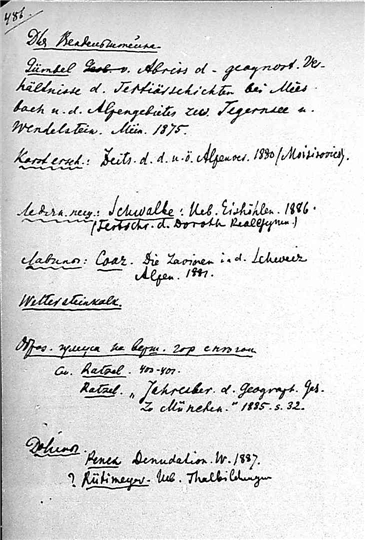 486.
Для Венденштейна
Gümbel v. Abriss d. geognost. Ver-
hältnisse d. Tertiärschichten bei Mies-
bach u. d. Alpengebietes zw. Tegernsee u.
Wendelstein. Mün. 1875.
Karrenersch.: Zeits. d. d. u. ö. Alpenver. 1880 (Mojsisovics).
Ледян. пещ.: Schwalbe: Ueb. Eishöhlen. 1886.
(Festschr. d. Doroth. Realgymn.)
Лавины: Coaz. Die Lavinen in d. Schweiz
Alpen. 1881.
Wettersteinkalk.
Образ. гумуса на верш. гор
См. Ratzel.
Ratzel. „Jahresber. d. Geograph. Ges.
Zu München." 1885. s. 32.
Долины
Penck Denudation. W. 1887.
? Rütimeyer. Ueb. Thalbildungen